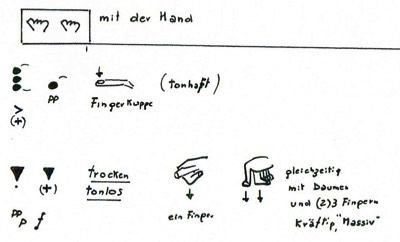 mit der Hand
pp
Fingerkuppe
(tonhaft)
>
(+)
(+)
trocken
tonlos
pp
p f
ein Finger
gleichzeitig
mit Daumen
und (2)3 Fingern
kräftig, "Massiv"